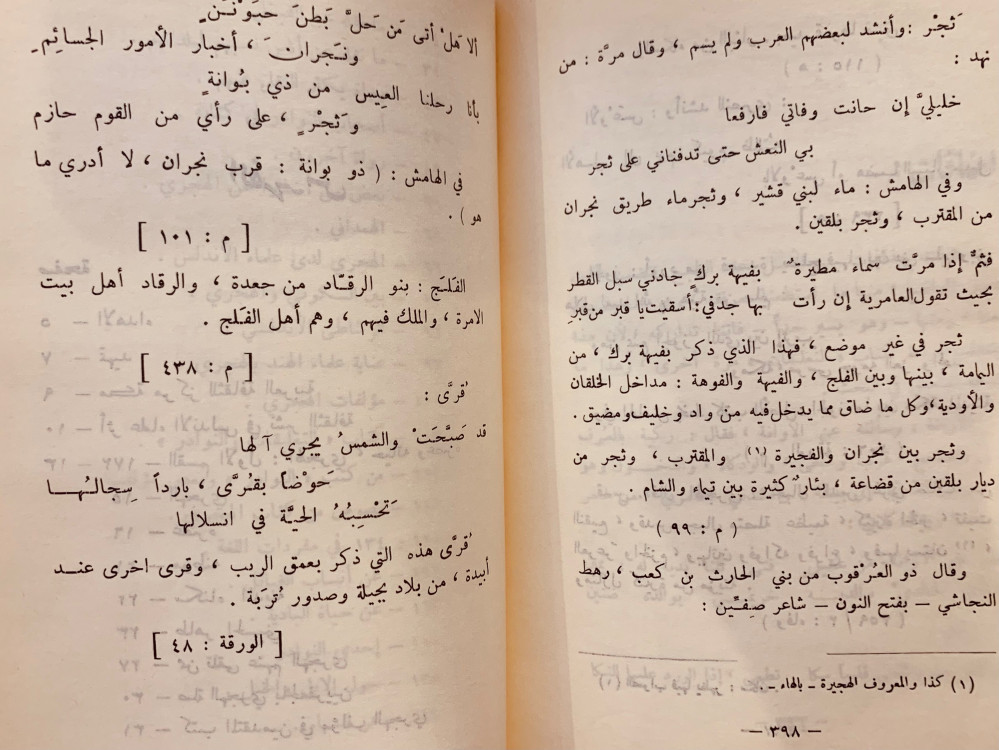 ثَجْر : وأنشد لبعضهم العرب ولم يسم ، وقال مرَّة : من
نهد :
خليليَّ إن حانت وفاتي فارفعا
بي النعش حتى تدفناني على ثجر
وفي الهامش : ماء لبني قشير ، وثجرماء طريق نجران
من المقترب ، وثجر بلقين .
فثمَّ إذا مرَّت سماء مطيرةٌ بفيهة بركٍ جادني سبل القطر
بحيث تقول العامرية إن رأت بها جدفي : أسقيت يا قبر من قبرِ
ثجر في غير موضع ، فهذا الذي ذكر بفيهة برك ، من
اليامة ، بينها وبين الفلج ، والفيهة والفوهة : مداخل الخلقان
والأودية ، وكل ما ضاق مما يدخل فيه من واد وخليف ومضيق .
وثجر بين نجران والفجيرة (١) والمقترب ، وثجر من
ديار بلقين من قضاعة ، بئارٌ كثيرة بين تيماء والشام .
( م : ٩٩ )
وقال ذو العُرْقوب من بني الحارث بن كعب ، رهط
النجاشي – بفتح النون – شاعر صِفِّين :
(١) كذا والمعروف الهجيرة – بالهاء – .
– ٣٩٨ –
ألا هَلْ أتى مَن حَلَّ بَطنَ حَبَوْنَنٍ
ونَجرانَ ، أخبار الأمور الجسائِمِ
بأنا رحلنا العِيس من ذي بُوانةٍ
وثَجْرٍ ، على رأي من القوم حازم
في الهامش : ( ذو بوانة : قرب نجران ، لا أدري ما
هو ) .
[ م : ١٠١ ]
الفَلَج : بنو الرقّاد من جعدة ، والرقاد أهل بيت
الامرة ، والملك فيهم ، وهم أهل الفَلج .
[ م : ٤٣٨ ]
قُرَّى :
قد صَبَّحَتْ والشمسُ يجري آلها
حَوْضاً بقُرَّى ، بارداً سِجالُهـا
تَحْسِبُهُ الحيَّة في انسلالها
قُرَّى هذه التي ذكر بعمق الريب ، وقرى اخرى عند
أبيدة ، من بلاد بجيلة وصدور تُرَبة .
[ الورقة : ٤٨ ]